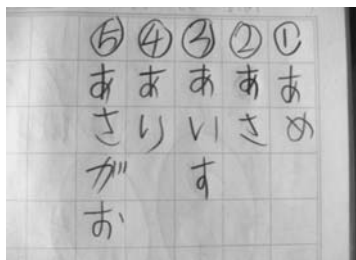 ①あめ
②あさ
③あいす
④あり
⑤あさがお